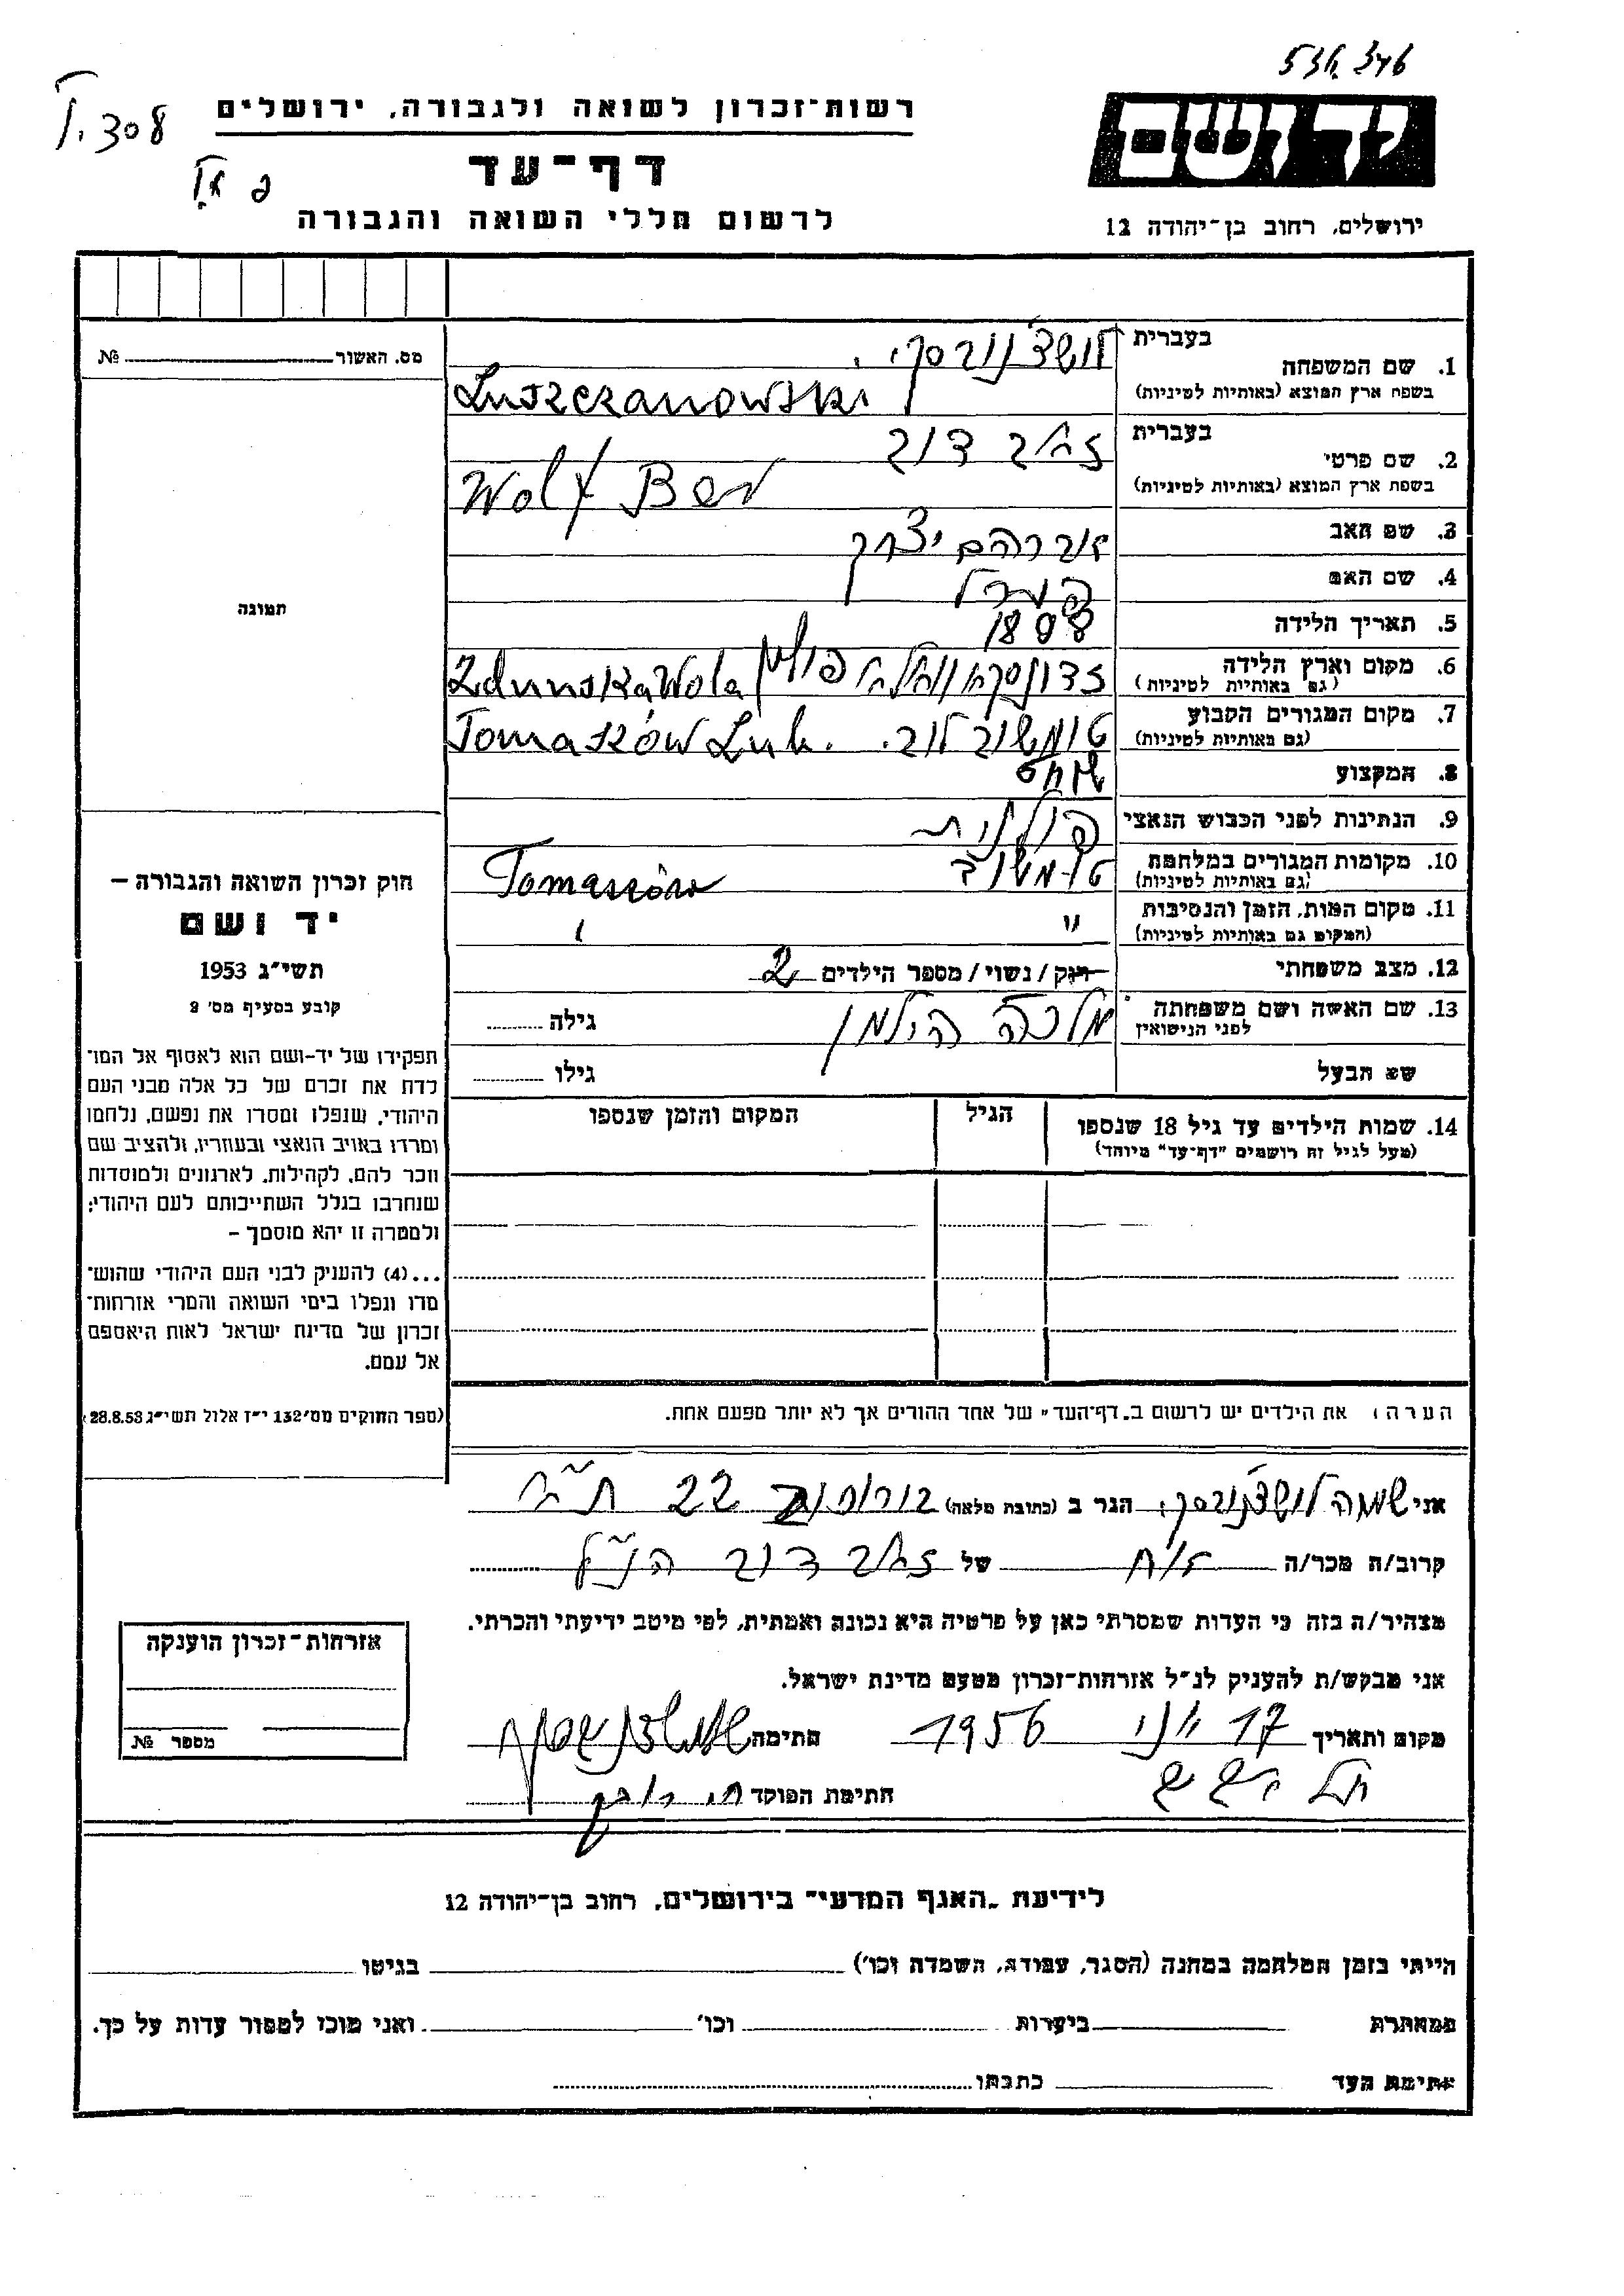 רשות־זכרון לשואה ולגבורה, ירושלים
דף־עד
לרשום חללי השואה והגבורה
יד ושם
ירושלים, רחוב בן־יהודה 12
מס. האשור № 
1. שם המשפחה בעברית לושצ'נובסקי
בשפת ארץ המוצא (באותיות לטיניות) Luszczanowski
2. שם פרטי בעברית זאב דוב
בשפת ארץ המוצא (באותיות לטיניות) Wolf Ber
3. שם האב אברהם יצחק
4. שם האם
5. תאריך הלידה 1898
6. מקום וארץ הלידה (גם באותיות לטיניות) זדונסקה וואלה פולין Zduńska Wola
7. מקום המגורים הקבוע (גם באותיות לטיניות) טומשוב לוב. Tomaszów Lub.
8. המקצוע שוחט
9. הנתינות לפני הכבוש הנאצי פולנית
10. מקומות המגורים במלחמה (גם באותיות לטיניות) טומשוב Tomaszów
11. מקום המות, הזמן והנסיבות (המקום גם באותיות לטיניות) "
12. מצב משפחתי רווק / נשוי / מספר הילדים 2
13. שם האשה ושם משפחתה לפני הנישואין מלכה הילמן גילה
שם הבעל גילו
14. שמות הילדים עד גיל 18 שנספו
(מעל לגיל זה רושמים "דף־עד" מיוחד)
הגיל
המקום והזמן שנספו
תמונה
חוק זכרון השואה והגבורה –
יד ושם
תשי"ג 1953
קובע בסעיף מס' 2
תפקידו של יד-ושם הוא לאסוף אל המו־
לדת את זכרם של כל אלה מבני העם
היהודי, שנפלו ומסרו את נפשם, נלחמו
ומרדו באויב הנאצי ובעוזריו, ולהציב שם
וזכר להם, לקהילות, לארגונים ולמוסדות
שנחרבו בגלל השתייכותם לעם היהודי;
ולמטרה זו יהא מוסמך –
...(4) להעניק לבני העם היהודי שהוש־
מדו ונפלו בימי השואה והמרי אזרחות־
זכרון של מדינת ישראל לאות היאספם
אל עמם.
(ספר החוקים מס' 132 י"ז אלול תשי"ג 28.8.53)
הערה: את הילדים יש לרשום ב„דף־העד" של אחד ההורים אך לא יותר מפעם אחת.
אני שמחה לושצ'נובסקי הגר ב (כתובת מלאה) 22 ת"א
קרוב/ה מכר/ה אח של זאב דוב הנ"ל
מצהיר/ה בזה כי העדות שמסרתי כאן על פרטיה היא נכונה ואמתית, לפי מיטב ידיעתי והכרתי.
אני מבקש/ת להעניק לנ"ל אזרחות־זכרון מטעם מדינת ישראל.
מקום ותאריך 17 יוני 1956 חתימה
חתימת הפוקד
אזרחות־זכרון הוענקה
מספר №
לידיעת „האגף המדעי" בירושלים, רחוב בן־יהודה 12
הייתי בזמן המלחמה במחנה (הסגר, עבודה, השמדה וכו') בגיטו
במחתרת ביערות וכו' ואני מוכן למסור עדות על כך.
חתימת העד כתבתו